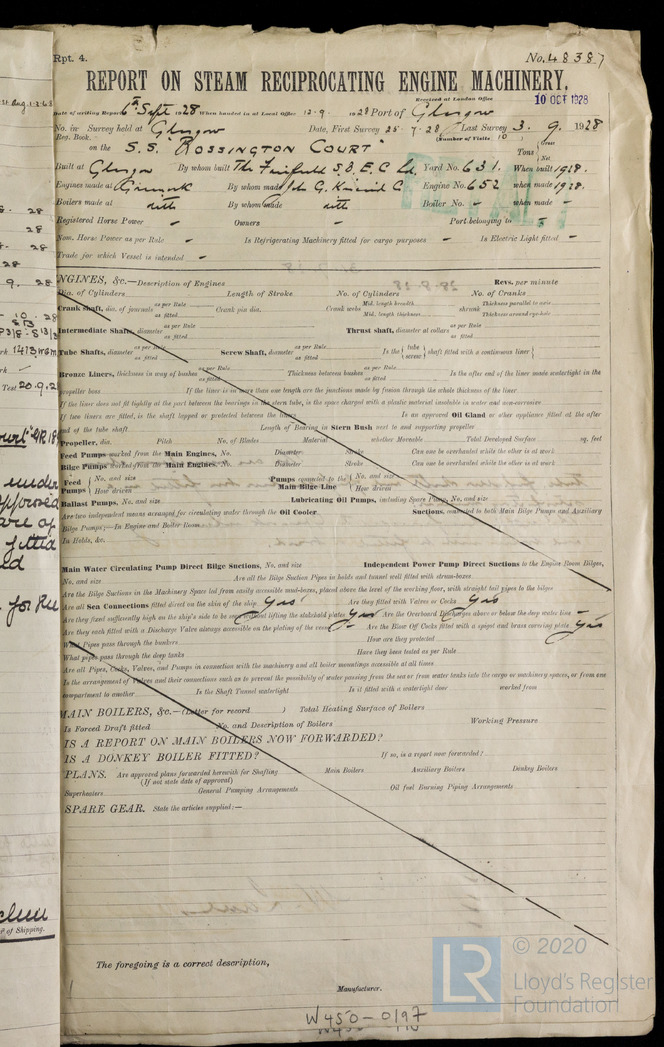 Rpt. 4. No. 48387
REPORT ON STEAM RECIPROCATING ENGINE MACHINERY.
Received at London Office 10 OCT 1928
Date of writing Report 6th Sept 1928 When handed in at Local Office 12-9-1928 Port of Glasgow
No. in Survey held at Glasgow Date, First Survey 25-7-28 Last Survey 3. 9. 1928
Reg. Book. (Number of Visits 10 )
on the S.S. "ROSSINGTON COURT" Tons { Gross Net
Built at Glasgow By whom built The Fairfield S.B. & E.C Ld. Yard No. 631. When built 1928.
Engines made at Greenock By whom made John G. Kincaid C Engine No. 652 when made 1928.
Boilers made at ditto By whom made ditto Boiler No. - when made -
Registered Horse Power - Owners - Port belonging to -
Nom. Horse Power as per Rule - Is Refrigerating Machinery fitted for cargo purposes - Is Electric Light fitted -
Trade for which Vessel is intended -
NGINES, &c.—Description of Engines Revs. per minute
Dia. of Cylinders Length of Stroke No. of Cylinders No. of Cranks
Crank shaft, dia. of journals as per Rule as fitted Crank pin dia. Crank webs Mid. length breadth Mid. length thickness shrunk Thickness parallel to axis Thickness around eye-hole
Intermediate Shafts, diameter as per Rule as fitted Thrust shaft, diameter at collars as per Rule as fitted
Tube Shafts, diameter as per Rule as fitted Screw Shaft, diameter as per Rule as fitted Is the { tube screw } shaft fitted with a continuous liner {
Bronze Liners, thickness in way of bushes as per Rule as fitted Thickness between bushes as per Rule as fitted Is the after end of the liner made watertight in the
propeller boss If the liner is in more than one length are the junctions made by fusion through the whole thickness of the liner
If the liner does not fit tightly at the part between the bearings in the stern tube, is the space charged with a plastic material insoluble in water and non-corrosive
If two liners are fitted, is the shaft lapped or protected between the liners Is an approved Oil Gland or other appliance fitted at the after
end of the tube shaft Length of Bearing in Stern Bush next to and supporting propeller
Propeller, dia. Pitch No. of Blades Material whether Moveable Total Developed Surface sq. feet
Feed Pumps worked from the Main Engines, No. Diameter Stroke Can one be overhauled while the other is at work
Bilge Pumps worked from the Main Engines, No. Diameter Stroke Can one be overhauled while the other is at work
Feed Pumps { No. and size How driven Pumps connected to the Main Bilge Line { No. and size How driven
Ballast Pumps, No. and size Lubricating Oil Pumps, including Spare Pump, No. and size
Are two independent means arranged for circulating water through the Oil Cooler Suctions, connected to both Main Bilge Pumps and Auxiliary
Bilge Pumps;—In Engine and Boiler Room
In Holds, &c.
Main Water Circulating Pump Direct Bilge Suctions, No. and size Independent Power Pump Direct Suctions to the Engine Room Bilges,
No. and size Are all the Bilge Suction Pipes in holds and tunnel well fitted with strum-boxes
Are the Bilge Suctions in the Machinery Space led from easily accessible mud-boxes, placed above the level of the working floor, with straight tail pipes to the bilges
Are all Sea Connections fitted direct on the skin of the ship Yes Are they fitted with Valves or Cocks Yes
Are they fixed sufficiently high on the ship's side to be seen without lifting the stokehold plates Yes Are the Overboard Discharges above or below the deep water line -
Are they each fitted with a Discharge Valve always accessible on the plating of the vessel - Are the Blow Off Cocks fitted with a spigot and brass covering plate Yes
What Pipes pass through the bunkers How are they protected
What pipes pass through the deep tanks Have they been tested as per Rule
Are all Pipes, Cocks, Valves, and Pumps in connection with the machinery and all boiler mountings accessible at all times
Is the arrangement of Valves and their connections such as to prevent the possibility of water passing from the sea or from water tanks into the cargo or machinery spaces, or from one
compartment to another Is the Shaft Tunnel watertight Is it fitted with a watertight door worked from
MAIN BOILERS, &c.—(Letter for record ) Total Heating Surface of Boilers
Is Forced Draft fitted No. and Description of Boilers Working Pressure
IS A REPORT ON MAIN BOILERS NOW FORWARDED?
IS A DONKEY BOILER FITTED? If so, is a report now forwarded?
PLANS. Are approved plans forwarded herewith for Shafting Main Boilers Auxiliary Boilers Donkey Boilers
(If not state date of approval)
Superheaters General Pumping Arrangements Oil fuel Burning Piping Arrangements
SPARE GEAR. State the articles supplied:—
The foregoing is a correct description,
Manufacturer.
W450-0197
LR © 2020
Lloyd's Register
Foundation